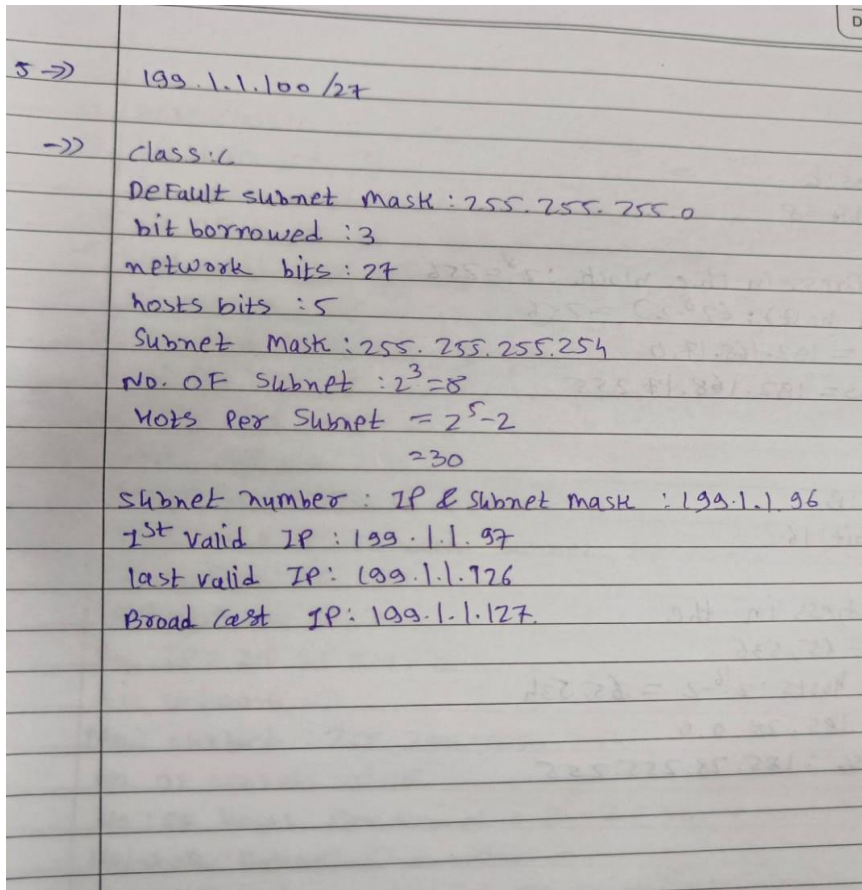 5 ->> 199.1.1.100/27
->> class:C
Default subnet mask : 255.255.255.0
bit borrowed : 3
network bits : 27
hosts bits : 5
Subnet mask : 255.255.255.254
No. OF Subnet : 2³=8
Hots Per Subnet = 2⁵-2
=30
subnet number : IP & Subnet mask : 199.1.1.96
1st valid IP : 199.1.1.97
last valid IP: 199.1.1.126
Broad Cast IP: 199.1.1.127.